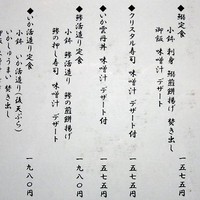 ◆鯣定食
小鉢 刺身 鯣煎餅揚げ 焚き出し
御飯 味噌汁 デザート
一五七五
◆クリスタル寿司 味噌汁 デザート付
一五七五
◆いか雲丹丼 味噌汁 デザート付
一五七五
◆鯵活造り定食
小鉢 鯵活造り 鯵の煎餅揚げ
鯵の押し寿司 味噌汁 デザート
一九八〇円
◆いか活造り定食
小鉢 いか活造り(後天ぷら)
いかしゅうまい 焚き出し
一九八〇円